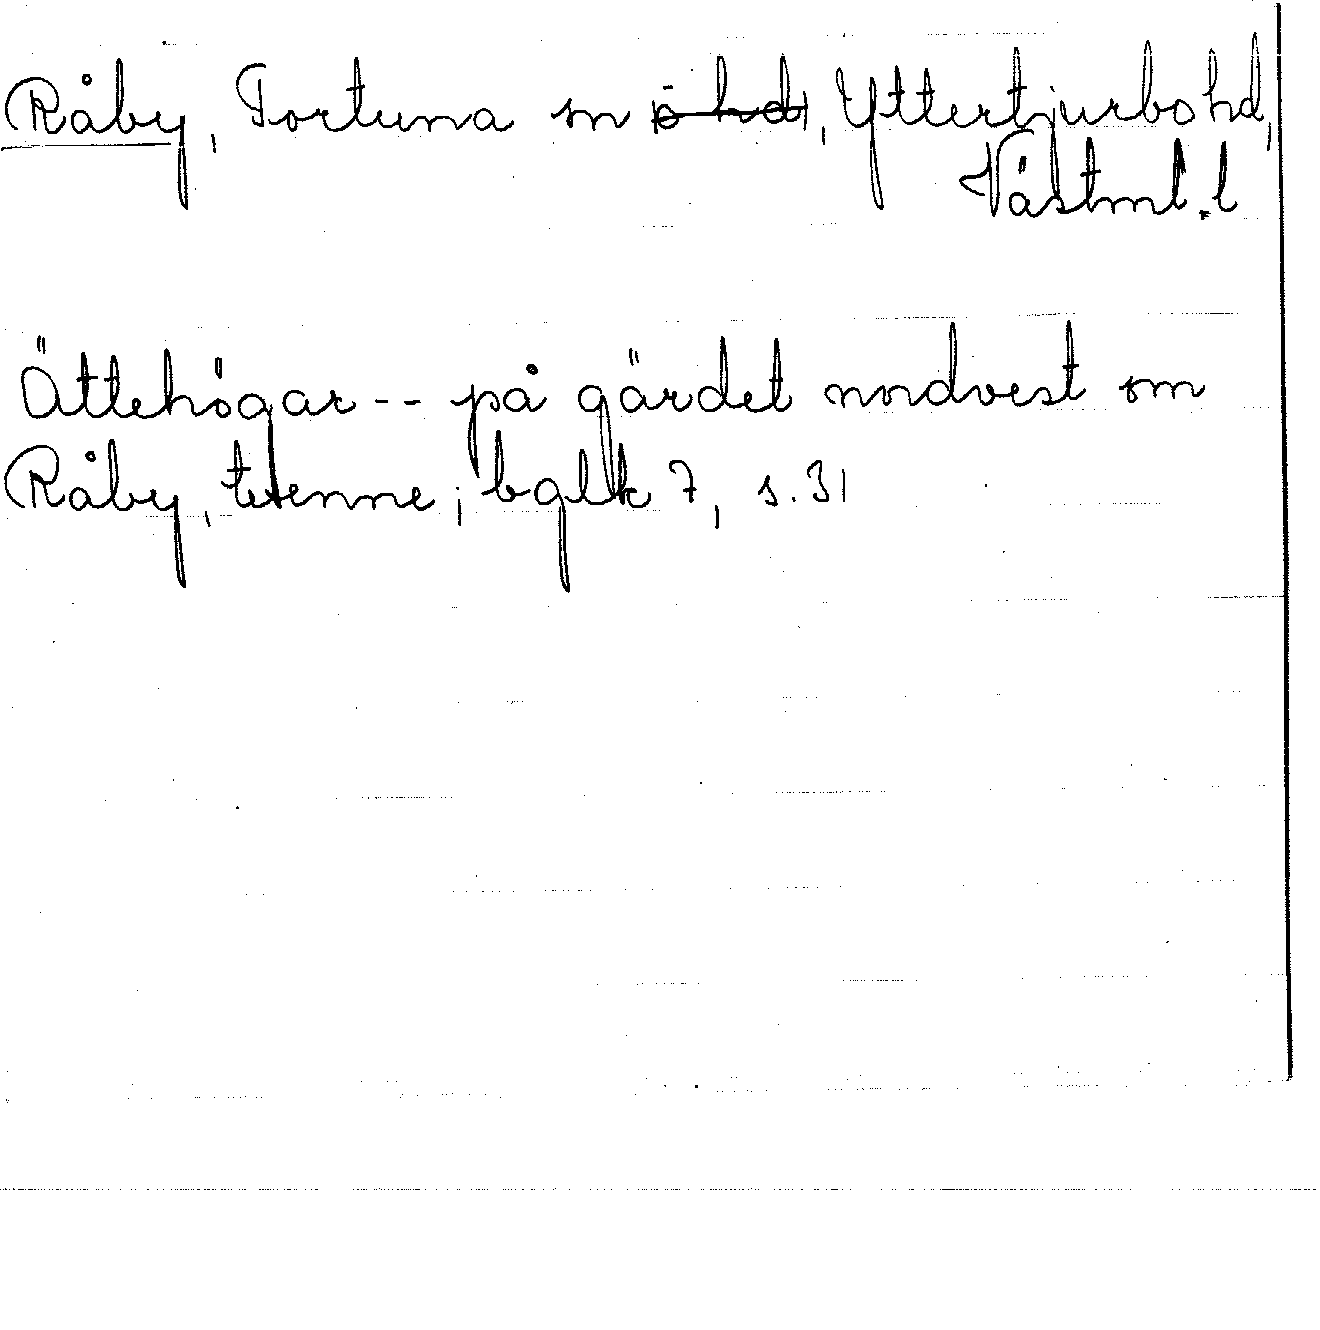 Råby, Fortuna sn ö hd, Yttertjurbo hd,
Västml. l
Ättehögar -- på gärdet nordvest om
Råby, Wenne; bglk 7, s. 31